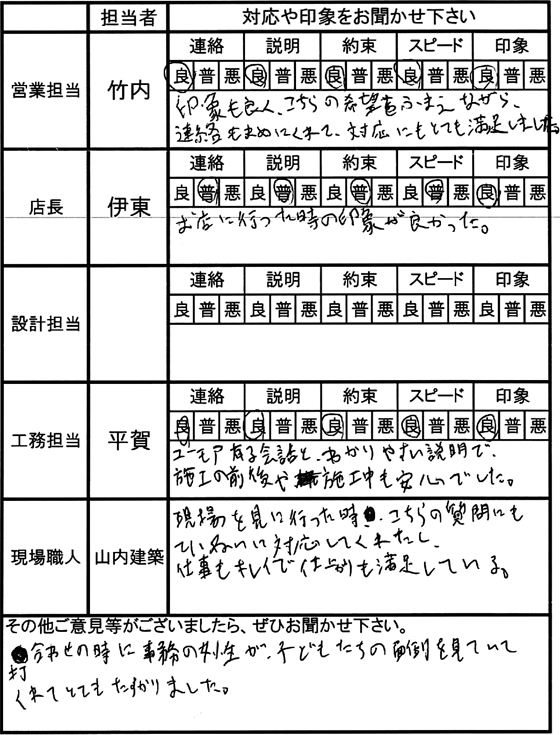 担当者 対応や印象をお聞かせ下さい
営業担当 竹内
連絡 説明 約束 スピード 印象
良 普 悪 良 普 悪 良 普 悪 良 普 悪 良 普 悪
印象も良く、こちらの希望をふまえながら、
連絡もまめにくれて、対応にもとても満足しました。
店長 伊東
連絡 説明 約束 スピード 印象
良 普 悪 良 普 悪 良 普 悪 良 普 悪 良 普 悪
お店に行った時の印象が良かった。
設計担当
連絡 説明 約束 スピード 印象
良 普 悪 良 普 悪 良 普 悪 良 普 悪 良 普 悪
工務担当 平賀
連絡 説明 約束 スピード 印象
良 普 悪 良 普 悪 良 普 悪 良 普 悪 良 普 悪
ユーモアある会話と、わかりやすい説明で、
施工の前後や施工中も安心でした。
現場職人 山内建築
現場を見に行った時、こちらの質問にも
ていねいに対応してくれたし、
仕事もキレイで仕上りも満足している。
その他ご意見等がございましたら、ぜひお聞かせ下さい。
打合わせの時に事務の が、子どもたちの面倒を見ていて
くれてとてもたすかりました。